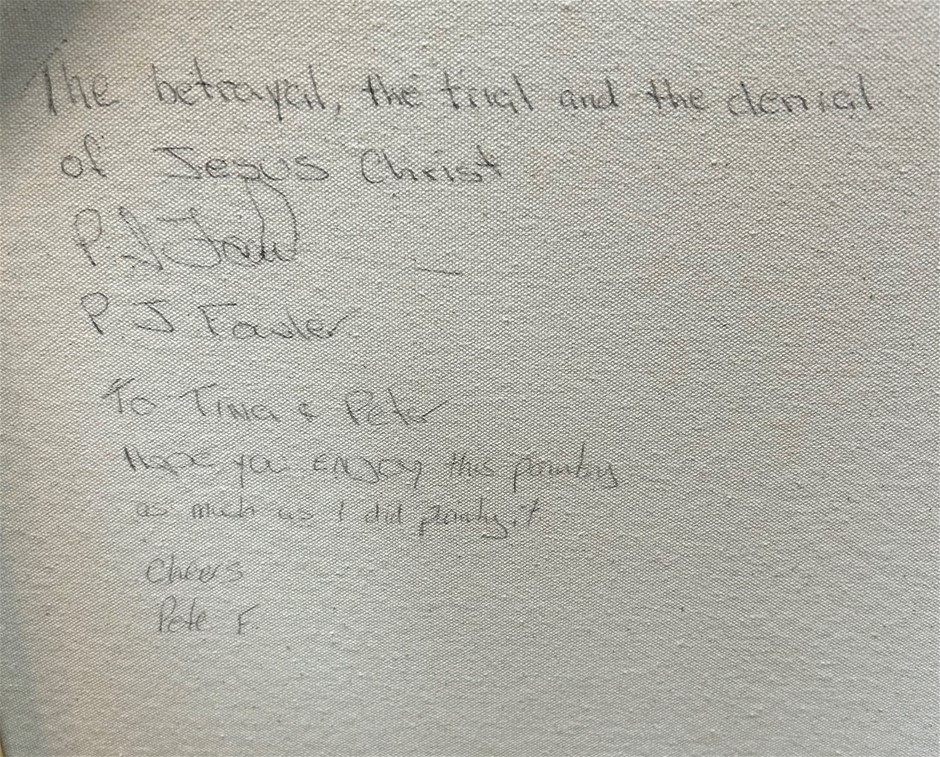 The betrayal, the trial and the denial
of Jesus Christ
P. J. Fowler
P J Fowler
To Tina & Peter
Hope you enjoy this painting
as much as I did painting it
Cheers
Pete F.